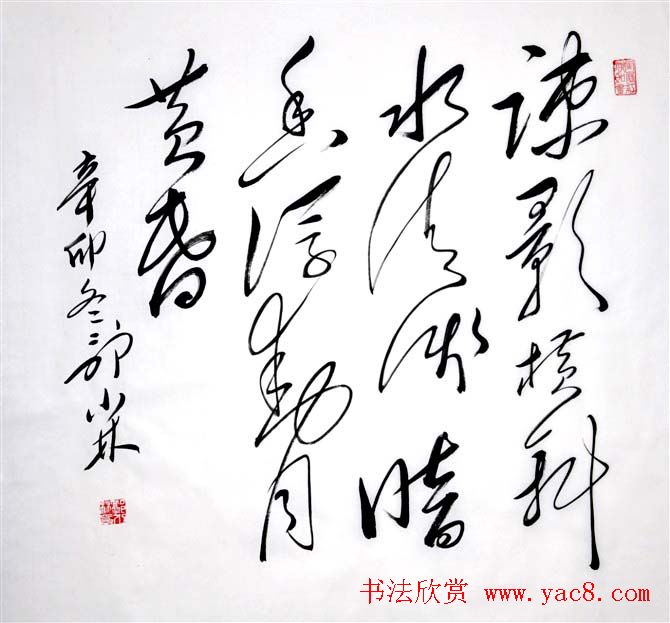 疎影横斜
水清浅暗
香浮動月
黄昏
辛卯冬邵小林
书法欣赏 www.yac8.com